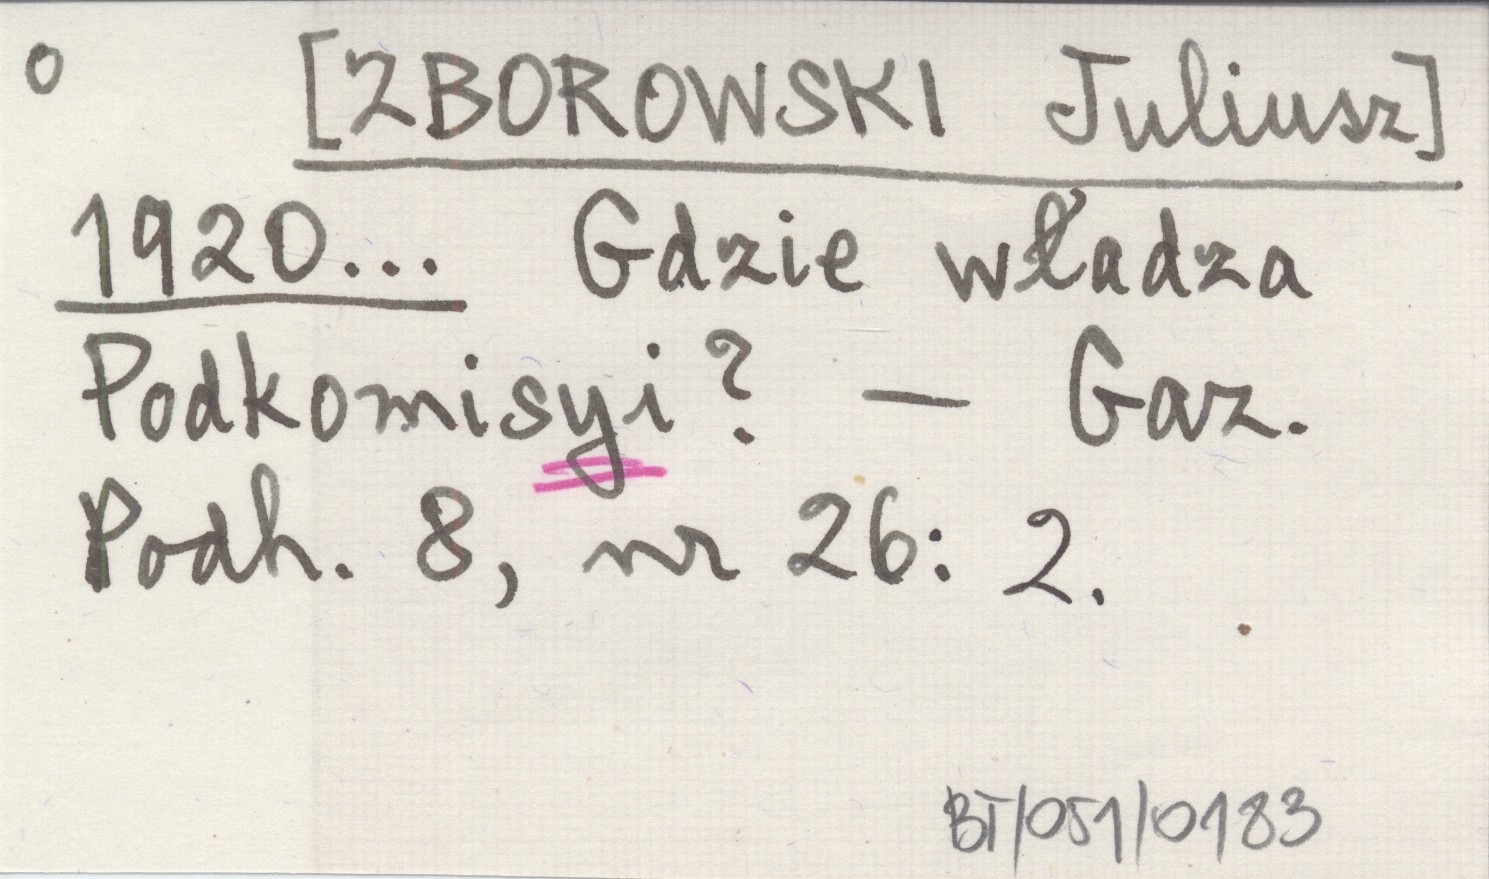 o [ZBOROWSKI Juliusz]
1920... Gdzie władza
Podkomisyi? — Gaz.
Podh. 8, nr 26: 2.
BT/051/0183